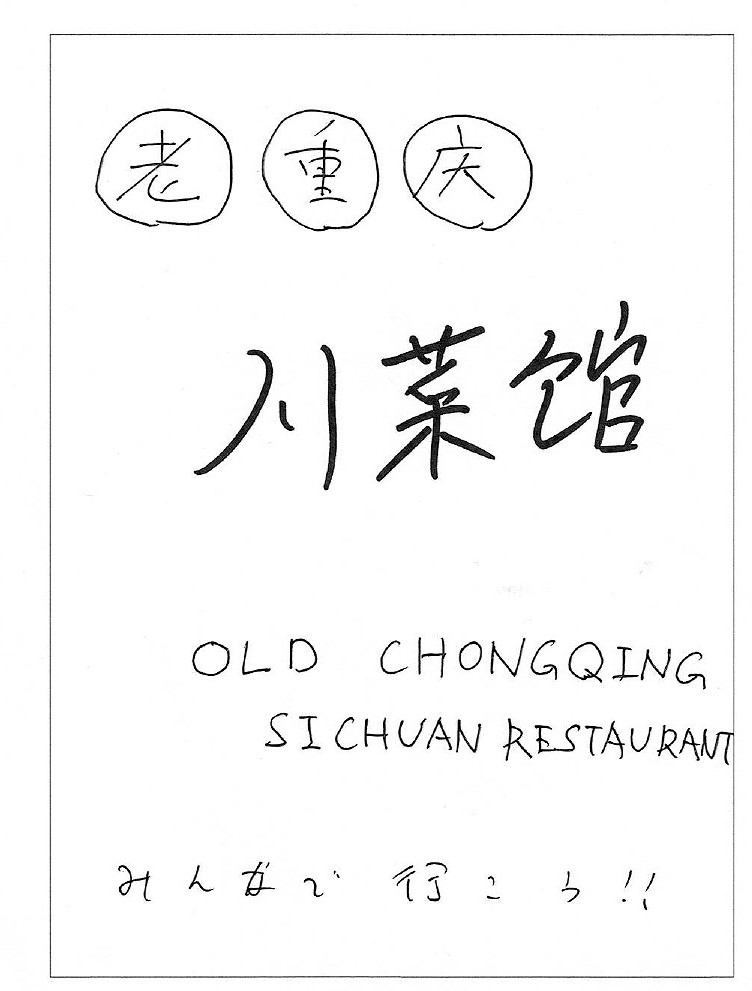 老重庆
川菜馆
OLD CHONGQING
SICHUAN RESTAURANT
みんなで行こう!!